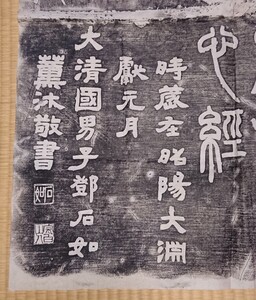 心經
時歲在昭陽大淵
獻元月
大清國男子鄧石如
薰沐敬書
石如